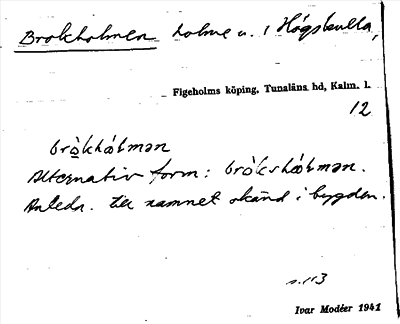 Brokholmen holme u. 1 Högskulla,
Figeholms köping, Tunaläns hd, Kalm. l.
12
bròkhòlmən
Alternativ form: bròkshòlmən.
Anledn. till namnet okänd i bygden.
s. 113
Ivar Modéer 1941